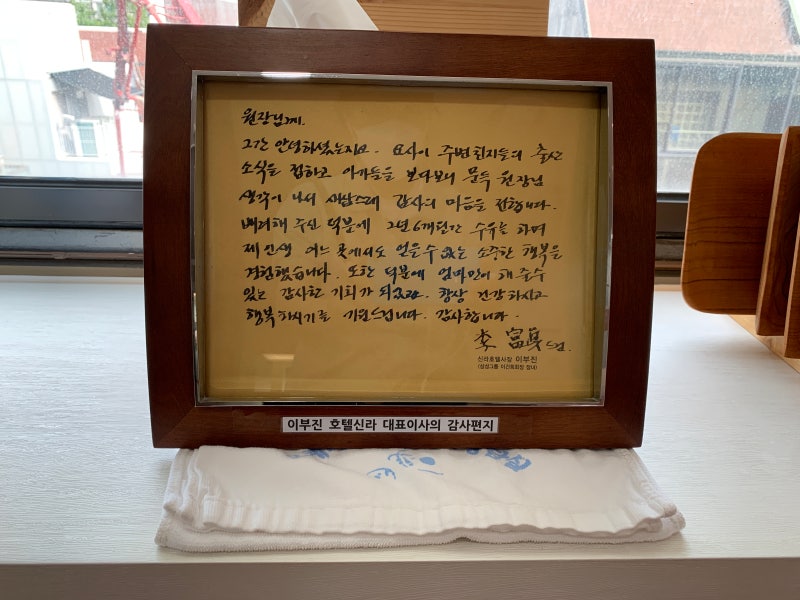 원장님께.
그간 안녕하셨는지요. 요사이 주변 친지들의 출산
소식을 접하고 아가들을 보다보니 문득 원장님
생각이 나서 새삼스레 감사의 마음을 전합니다.
배려해 주신 덕분에 2년 6개월간 수유를 하며
제 인생 어느 곳에서도 얻을 수 없는 소중한 행복을
경험했습니다. 또한 덕분에 엄마만이 해 줄 수
있는 감사한 기회가 되었고요. 항상 건강하시고
행복하시기를 기원드립니다. 감사합니다.
李富眞 드림.
신라호텔사장 이부진
(삼성그룹 이건희회장 장녀)
이부진 호텔신라 대표이사의 감사편지